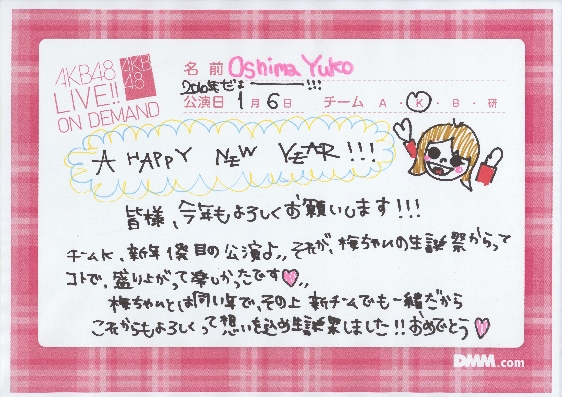 AKB48
LIVE!!
ON DEMAND
AKB
48
名前 Oshima Yuko
2010年だょーーー!!!
公演日 1月6日 チーム A・K・B・研
A HAPPY NEW YEAR!!!
皆様、今年もよろしくお願いします!!!
チームK、新年1発目の公演よ,,それが、梅ちゃんの生誕祭からって
コトで、盛り上がって楽しかったです♡,,
梅ちゃんとは同い年で、その上 新チームでも一緒だから
これからもよろしくって想いを込め生誕祭しました!!おめでとう♡
DMM.com